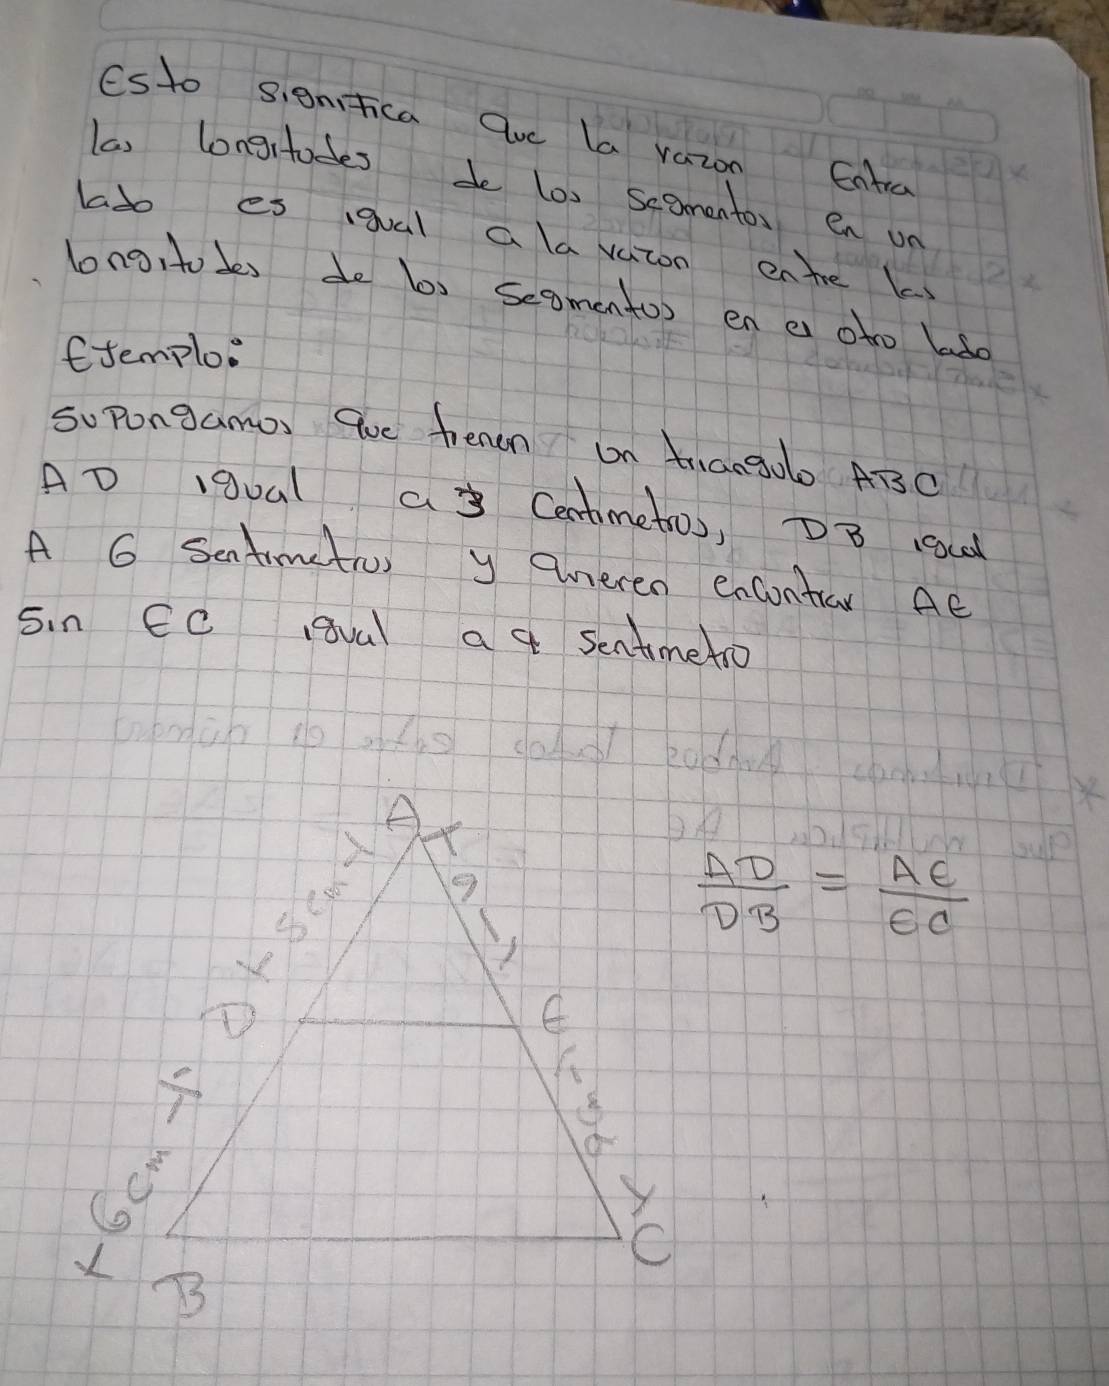 Esto significa que la razon Entra
las longitudes de los segmentos en un
lado es igual a la razon entre las
longitudes de los segmentos en el otro lado
Ejemplo:
Supongamos que tienen un triangulo ABC
AD igual a 3 Centimetros, DB igual
A 6 Sentimetros y quieren encontrar AE
Sin EC igual a 4 sentimetro
A
5cm
?
AD/DB = AE/EC
D
E
6cm
B
C